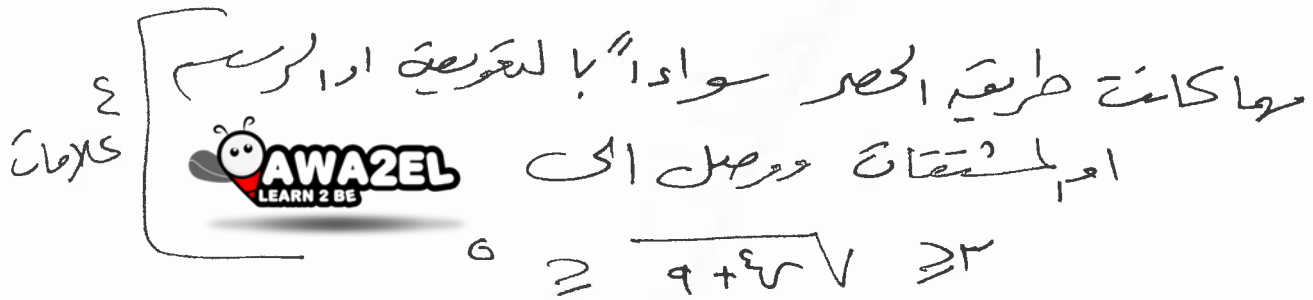 مهما كانت طريقة الحصر سواءاً بالتعويض او الرسم
او المشتقات ووصل الى
٣ ≤ √(٤س + ٩) ≤ ٥
٤ علامات
AWA2EL
LEARN 2 BE